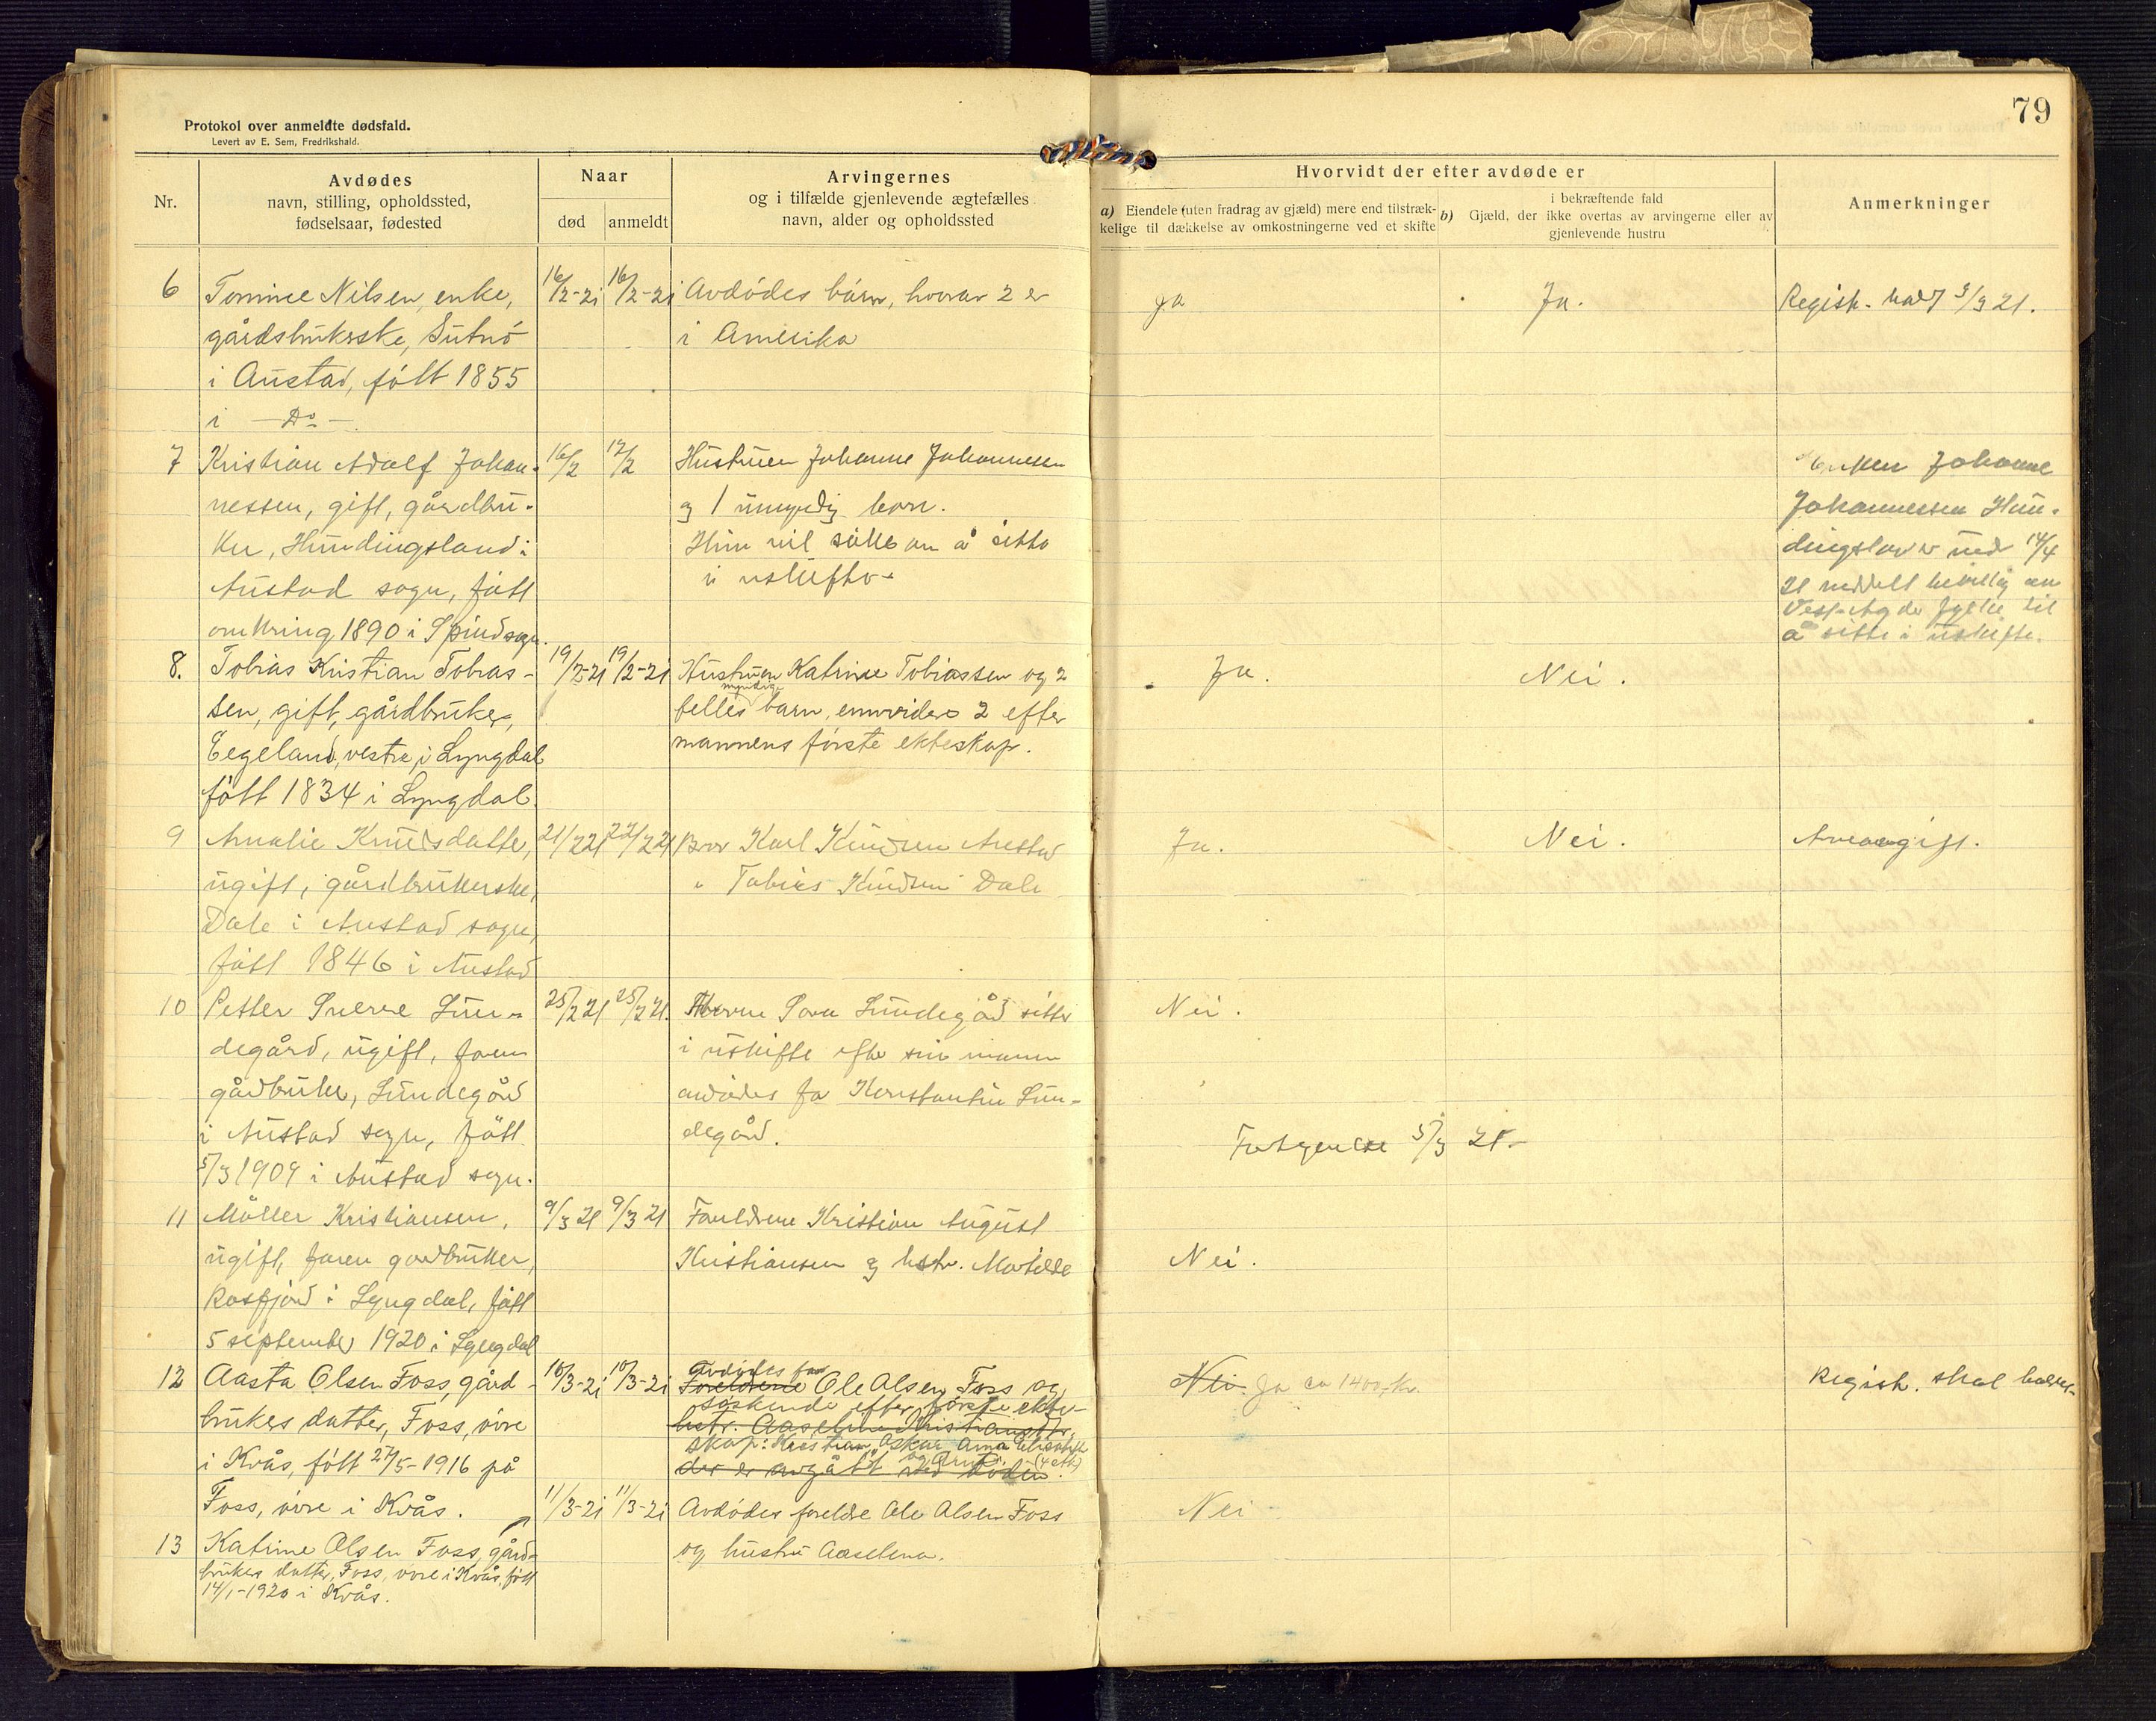 79
Protokol over anmeldte dødsfald.
Levert av E. Sem, Fredrikshald.
Nr.
Avdødes
navn, stilling, opholdssted,
fødselsaar, fødested
Naar
død
anmeldt
Arvingernes
og i tilfælde gjenlevende ægtefælles
navn, alder og opholdssted
Hvorvidt der efter avdøde er
a) Eiendele (uten fradrag av gjæld) mere end tilstræk-
kelige til dækkelse av omkostningerne ved et skifte
i bekræftende fald
b) Gjæld, der ikke overtas av arvingerne eller av
gjenlevende hustru
Anmerkninger
6
Tomine Nilsen, enke,
gårdsbrukerske, Sutnö
i Austad, fött 1855
i - Do -
16/2-21
16/2-21
Avdödes bårn, hvorav 2 er
i Amerika
Ja
Ja.
Registr. 3/3 21.
7
Kristian Adolf Johan-
nessen, gift, gårdbru-
ker, Hundingsland i
Austad sogn, fött
omkring 1890 i Spind sogn.
16/2
17/2
Hustruen Johanne Johannessen
og 1 umyndig barn.
Hun vil söke om å sitte
i uskifte.
Enken Johanne
Johannessen Hun-
dingsland er under 14/4
21 meddelt bevilling av
Vest-Agder fylke til
å sitte i uskifte.
8.
Tobias Kristian Tobias-
sen, gift, gårdbruker,
Eegeland, vestre, i Lyngdal
fött 1834 i Lyngdal.
19/2-21
19/2-21
Hustruen Katrine Tobiassen og 2
myndige
felles barn, envidere 2 efter
mannens förste ekteskap.
Ja.
Nei.
9
Amalie Knudsdatter,
ugift, gårdbrukerske,
Dale i Austad sogn,
fött 1846 i Austad
21/2 21
22/2 21
Bror Karl Knudsen Austad
" Tobias Knudsen Dale
Ja.
Nei.
Arveavgift.
10
Petter Sverre Lun-
degård, ugift, faren
gårdbruker, Lundegård
i Austad sogn, fött
5/3 1909 i Austad sogn.
25/2 21
25/2 21.
Lundegård sitter
i uskifte efter sin mann
avdödes far Konstantin Lun-
degård.
Nei.
5/3 21.-
11
Möller Kristiansen,
ugift, faren gardbruker,
Rosfjord i Lyngdal, fött
5 september 1920 i Lyngdal
9/3 21
9/3 21
Foreldrene Kristian August
Kristiansen og hstr. Matilde
Nei.
12
Aasta Olsen Foss, gård-
brukers datter, Foss, övre
i Kvås, fött 27/5-1916 på
Foss, övre i Kvås.
10/3-21
10/3-21
Avdödes far
Foreldrene Ole Olsen Foss og
söskende efter förste ekte-
hstr. Aaselene Kristiansdtr,
skap: Kristian, Oskar Anna Elisabeth
og Arnt. (4 stk)
der er avgått ved döden.
Nei. Ja ca 1400,- Kr.
Registr. skal holdes.
13
Katrine Olsen Foss, gård-
brukers datter, Foss, övre i Kvås, fött
14/1-1920 i Kvås.
11/3-21
11/3-21
Avdödes foreldre Ole Olsen Foss
og hustru Aaselena.
Nei